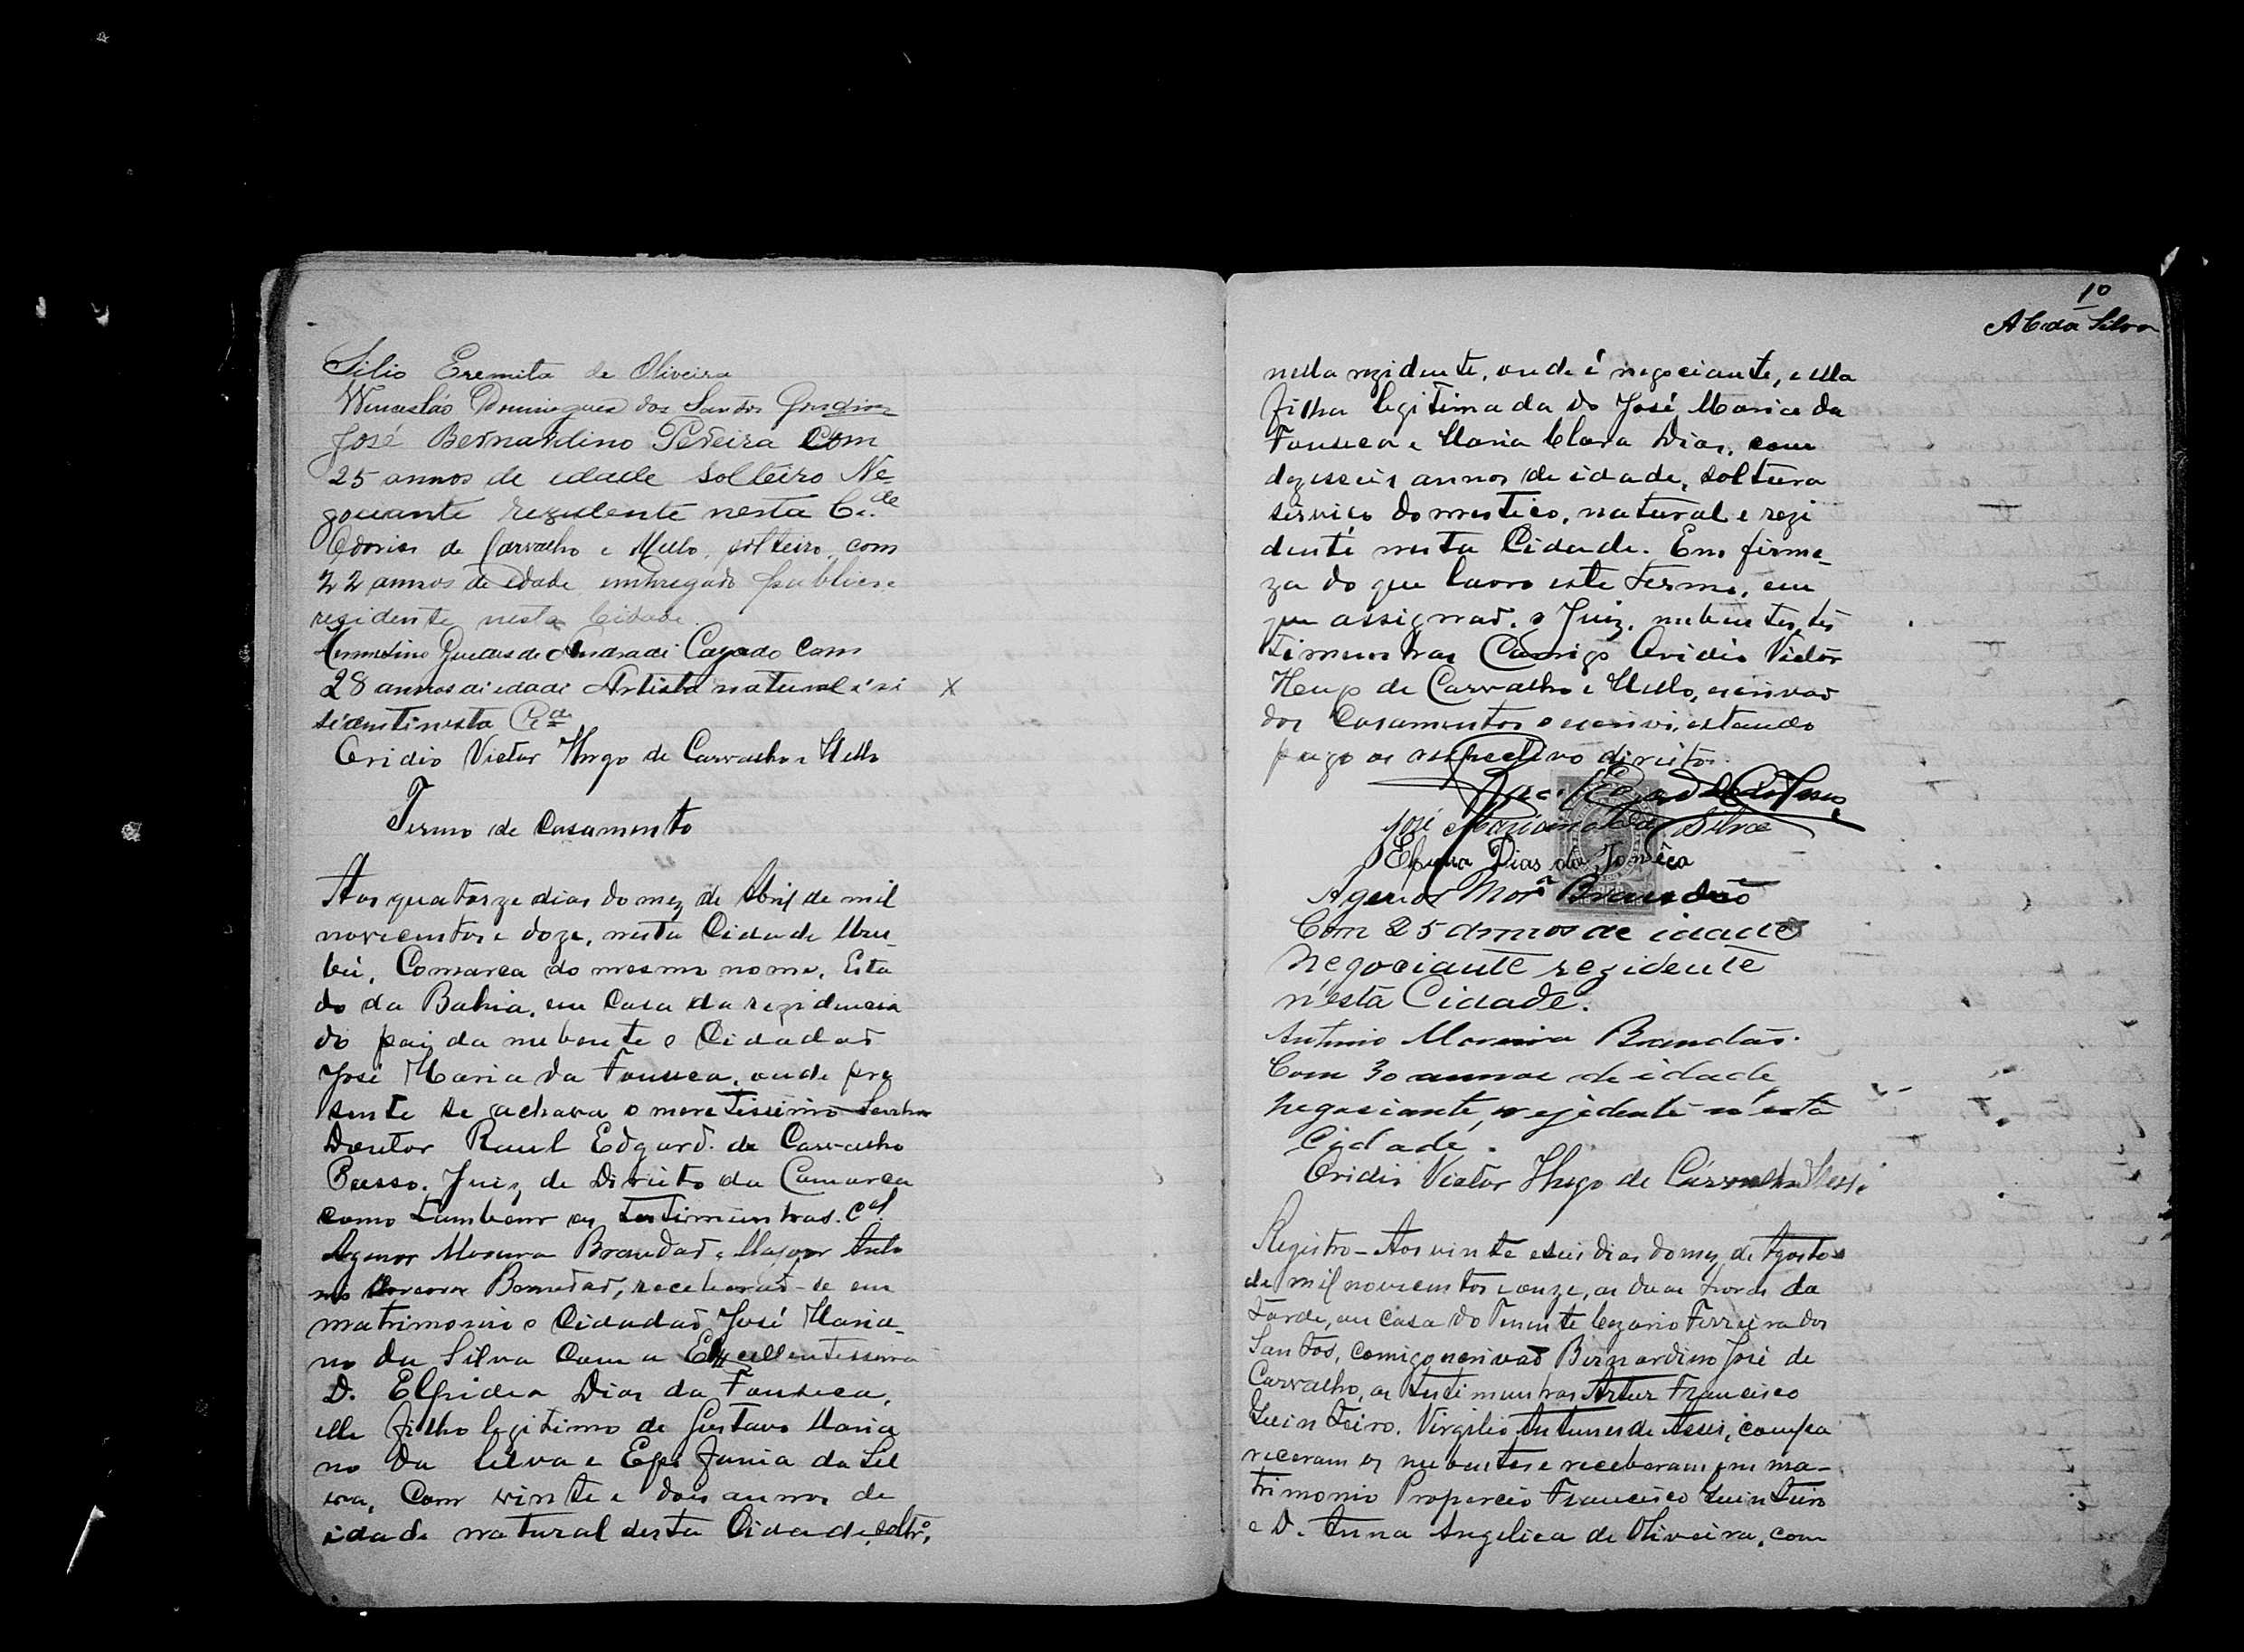 Silio Eremita de Oliveira
Wencesláo Domingues dos Santos
José Bernardino Pereira Com
25 annos de idade Solteiro Ne-
gociante rezidente nesta C.de
de Carvalho e Mello, solteiro, com
22 annos de edade, empregado publico e
residente nesta Cidade.
Guedes de Andradi Cayado Com
28 annos di idadi Artista natural i ri
sidenti nesta Ci.de
Ovidio Victor Hugo de Carvalho e Mello
Termo de Casamento
Aos quatorze dias do mez de Abril de mil
novecentos e doze, nesta Cidade Uru-
bú, Comarca do mesmo nome, Esta
do da Bahia, em Casa da rezidencia
do pai da nubente o Cidadaõ
José Maria da Fonseca, onde pre
sente se achava o meretissimo Senhor
Doutor Raul Edgard de Carvalho
Basso, Juiz de Direito da Comarca
como tambem as testimunhas. Cel.
Agenor Moreira Brandaõ e Major Anto
nio Moreira Brandaõ, receberaõ-se em
matrimonio o Cidadaõ José Maria-
no da Silva Com a Excellentissima
D. Elpidea Dias da Fonseca,
elle filho legitimo de Gustavo Maria
no da Silva e Epifania da Sil
va, Com vinte e dois annos de
idade natural desta Cidade, soltrº,
10
A C da Silva
nella rezidente, onde é negociante, e ella
filha legitima da do José Maria da
Fonseca e Maria Clara Dias, com
dezeseis annos de idade, solteira
serviço domestico, natural e rezi
dente nesta Cidade. Em firme-
za do que lavro este termo, em
que assignaõ, o Juiz, nubentes, tes
timunhas Comigo Ovidio Victor
Hugo de Carvalho e Mello, escrivaõ
dos Casamentos o escrivi, estando
pago os respectivo direitos.
José Mariano da Silva
Elpidea Dias da Fonsêca
Agenor Morª Brandão
Com 25 annos de idade
negociante rezidente
n'esta Cidade.
Antonio Moreira Brandão.
Com 30 annos de idade,
negociante, rezidente n'esta
Cidade.
Ovidio Victor Hugo de Carvalho Mello
Registro - Aos vinte e seis dias do mez de Agosto
de mil novecentos e onze, as duas horas da
tarde, em casa do Tenente Cezario Ferreira dos
Santos, comigo escrivaõ Bernardino José de
Carvalho, as testimunhas Artur Francisco
Quinteiro, Virgilio Antunes de Assis, compa
receram os nubentes e receberam em ma-
trimonio Propercio Francisco Quinteiro
e D. Anna Angelica de Oliveira, com